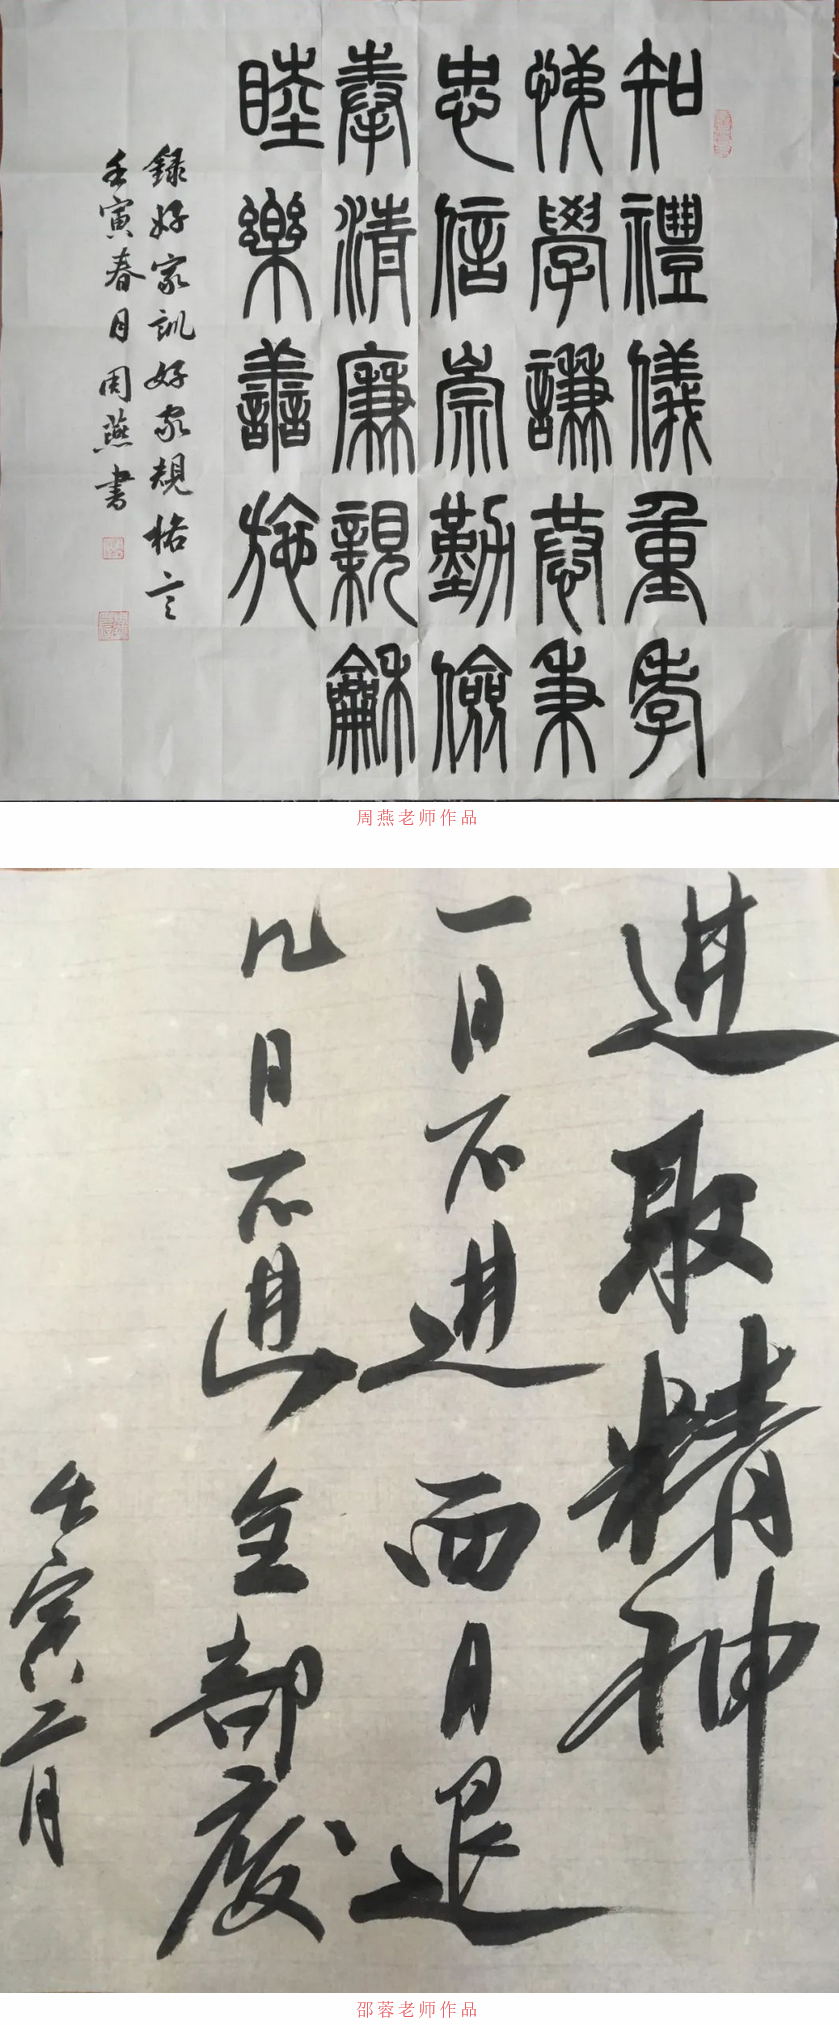 知禮儀重孝
悌學謙恭秉
忠信崇勤儉
奉清廉親龢
睦樂善施
録好家訓好家規格言
壬寅春月周燕書
周燕老师作品
进取精神
一日不进两日退
几日不进全部废
壬寅二月
邵蓉老师作品